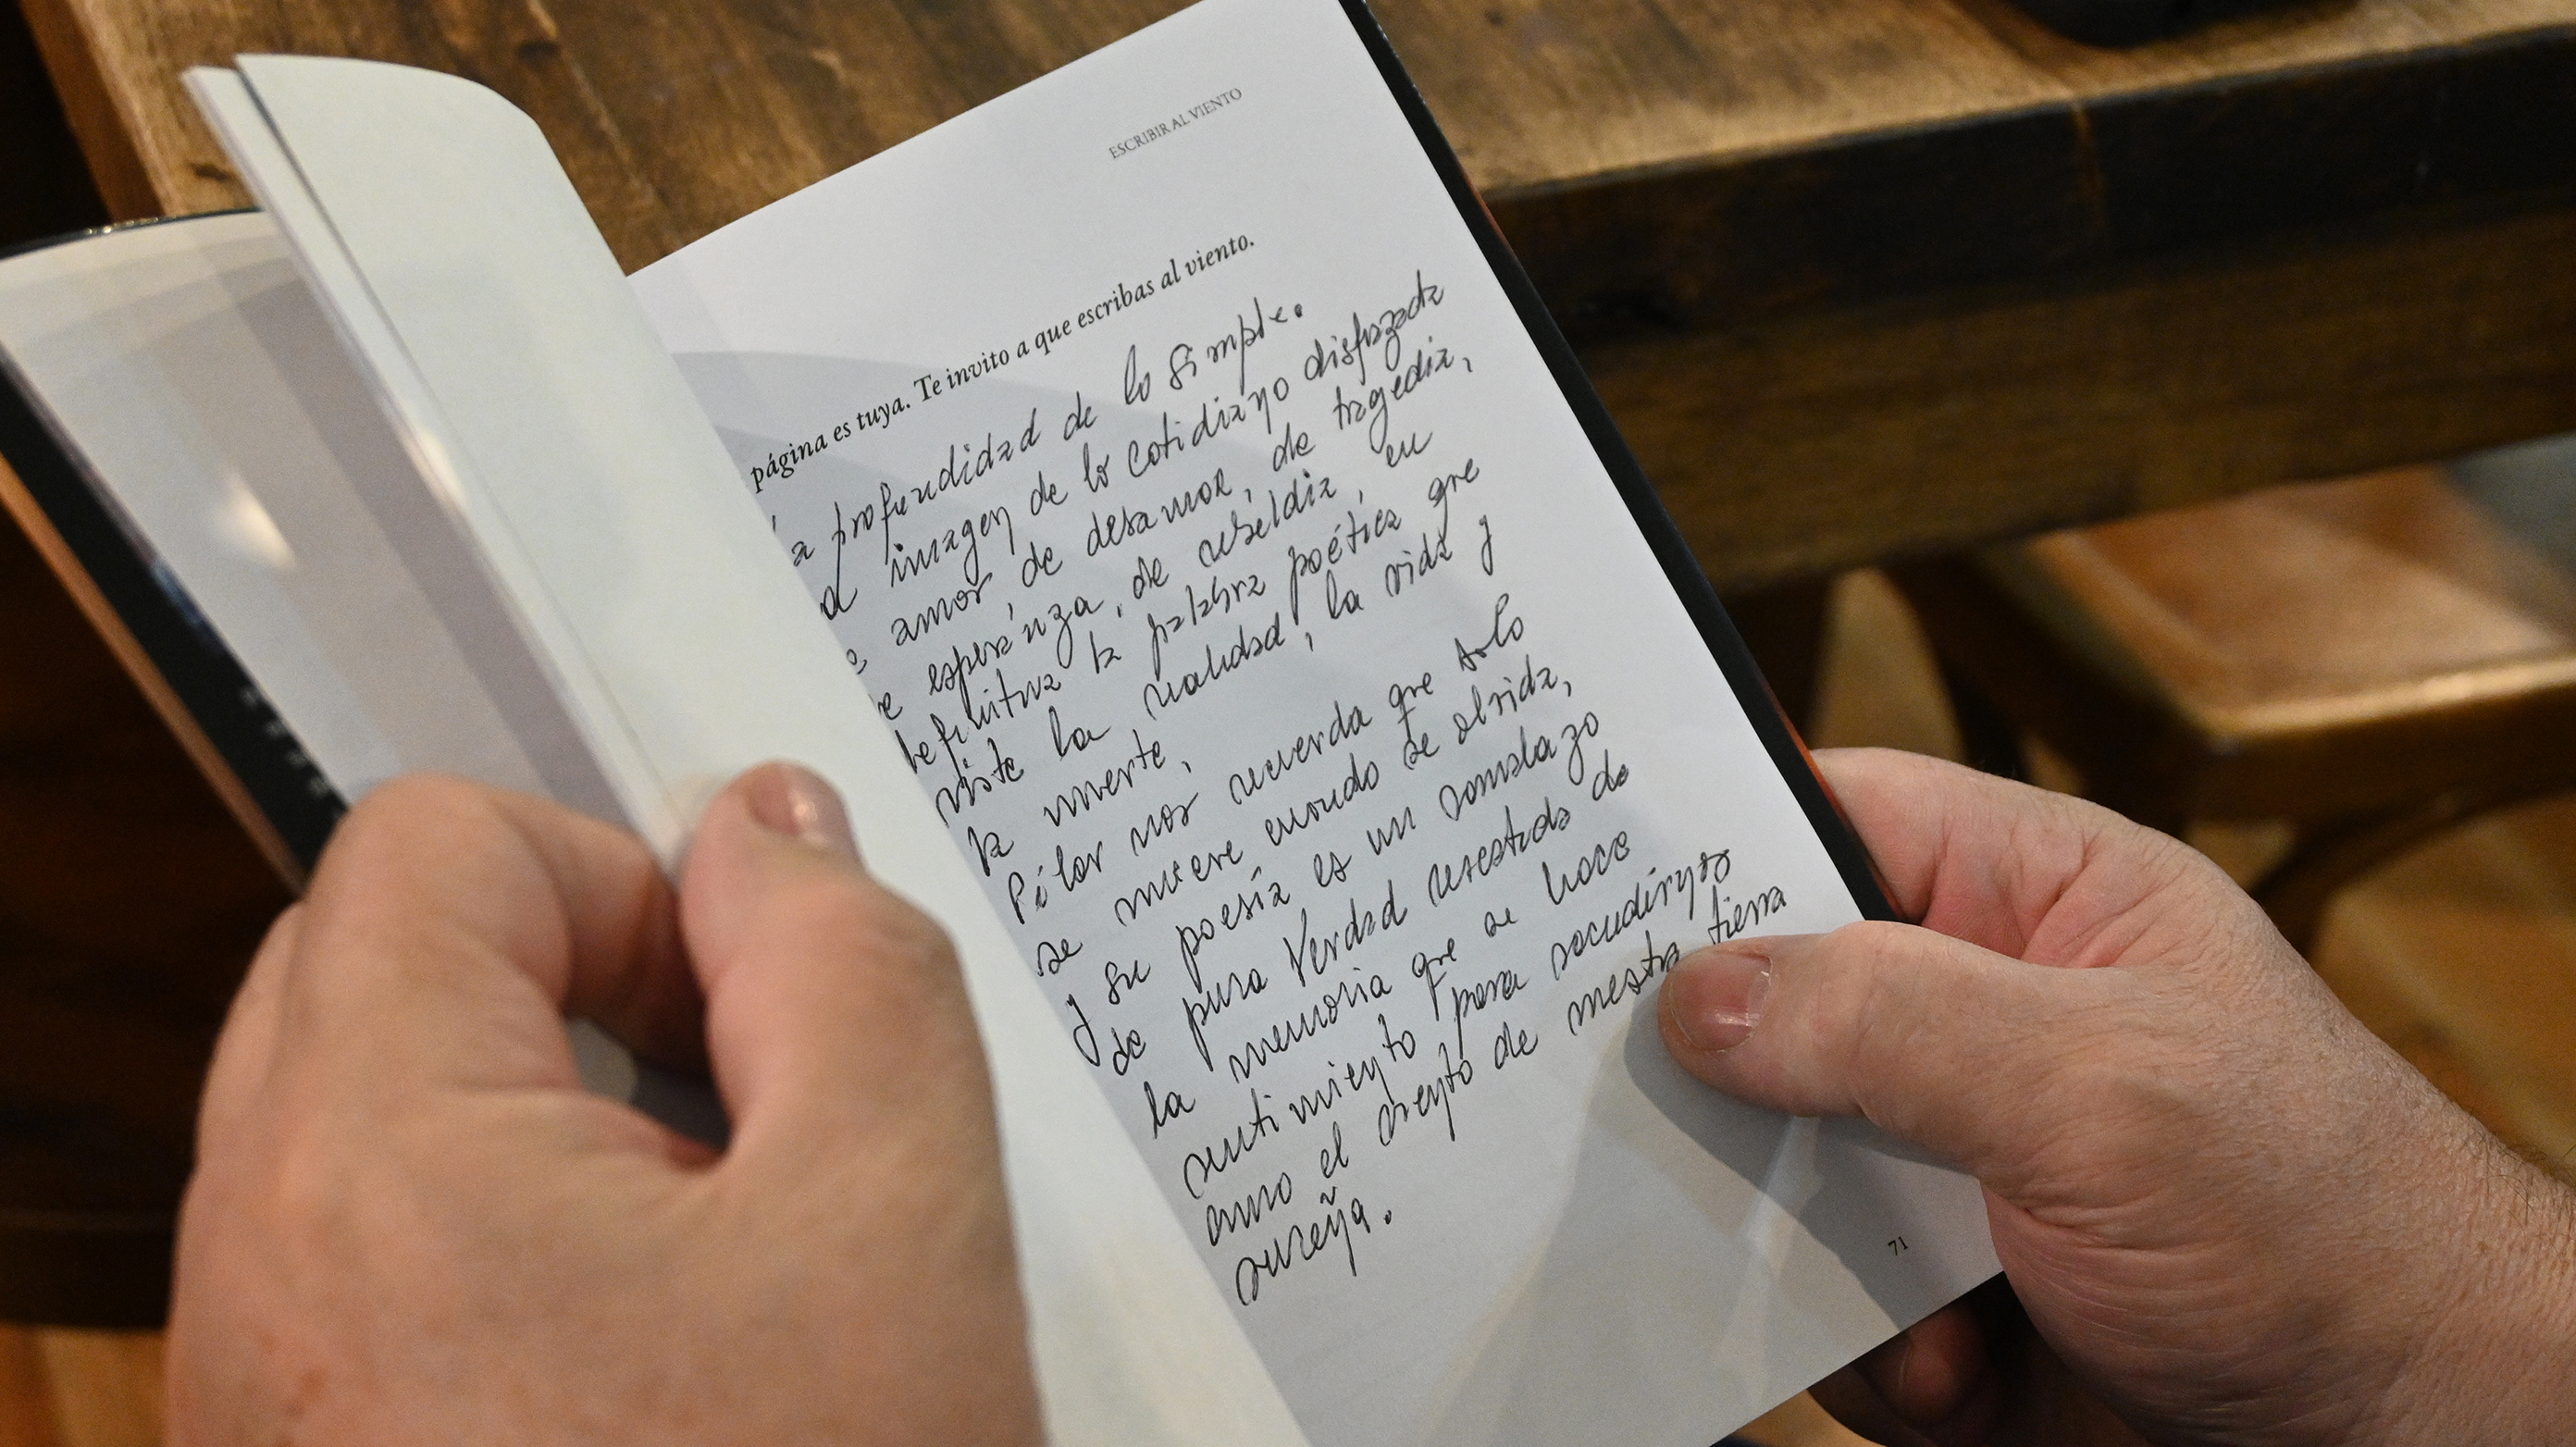 ESCRIBIR AL VIENTO
página es tuya. Te invito a que escribas al viento.
profundidad de lo simple.
imagen de lo cotidiano disfrazada
amor de desamor, de tragedia,
esperanza, de rebeldía, en
definitiva la palabra poética que
viste la realidad, la vida y
la muerte.
Pilar nos recuerda que solo
se muere cuando se olvida,
y su poesía es un
de pura Verdad resestida de
la memoria que se hace
sentimiento para sacudirnos
como el viento de nuestra tierra
sureña.
71